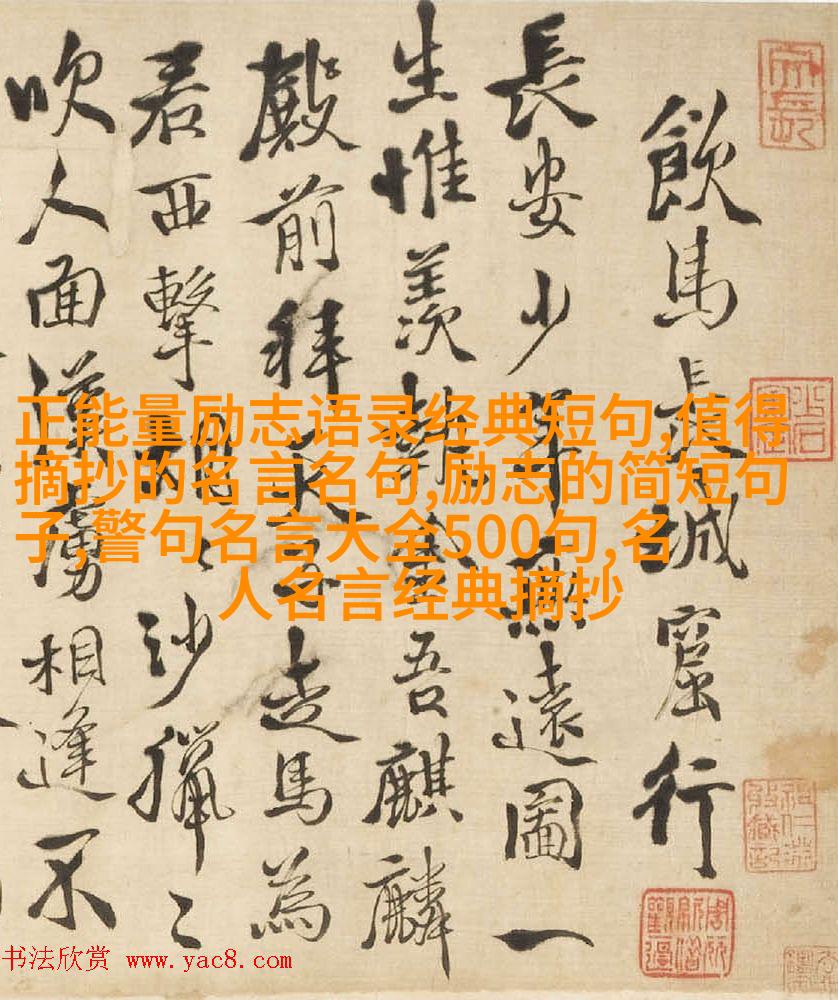 飲馬長城窟行
長安少年無遠圖一
生惟羨執金吾麒麟
殿前拜天子走馬為
君西擊胡〻沙獵〻
吹人面漢虜相逢不
正能量励志语录经典短句,值得
摘抄的名言名句,励志的简短句
子,警句名言大全500句,名
人名言经典摘抄
书法欣赏 www.yac8.com